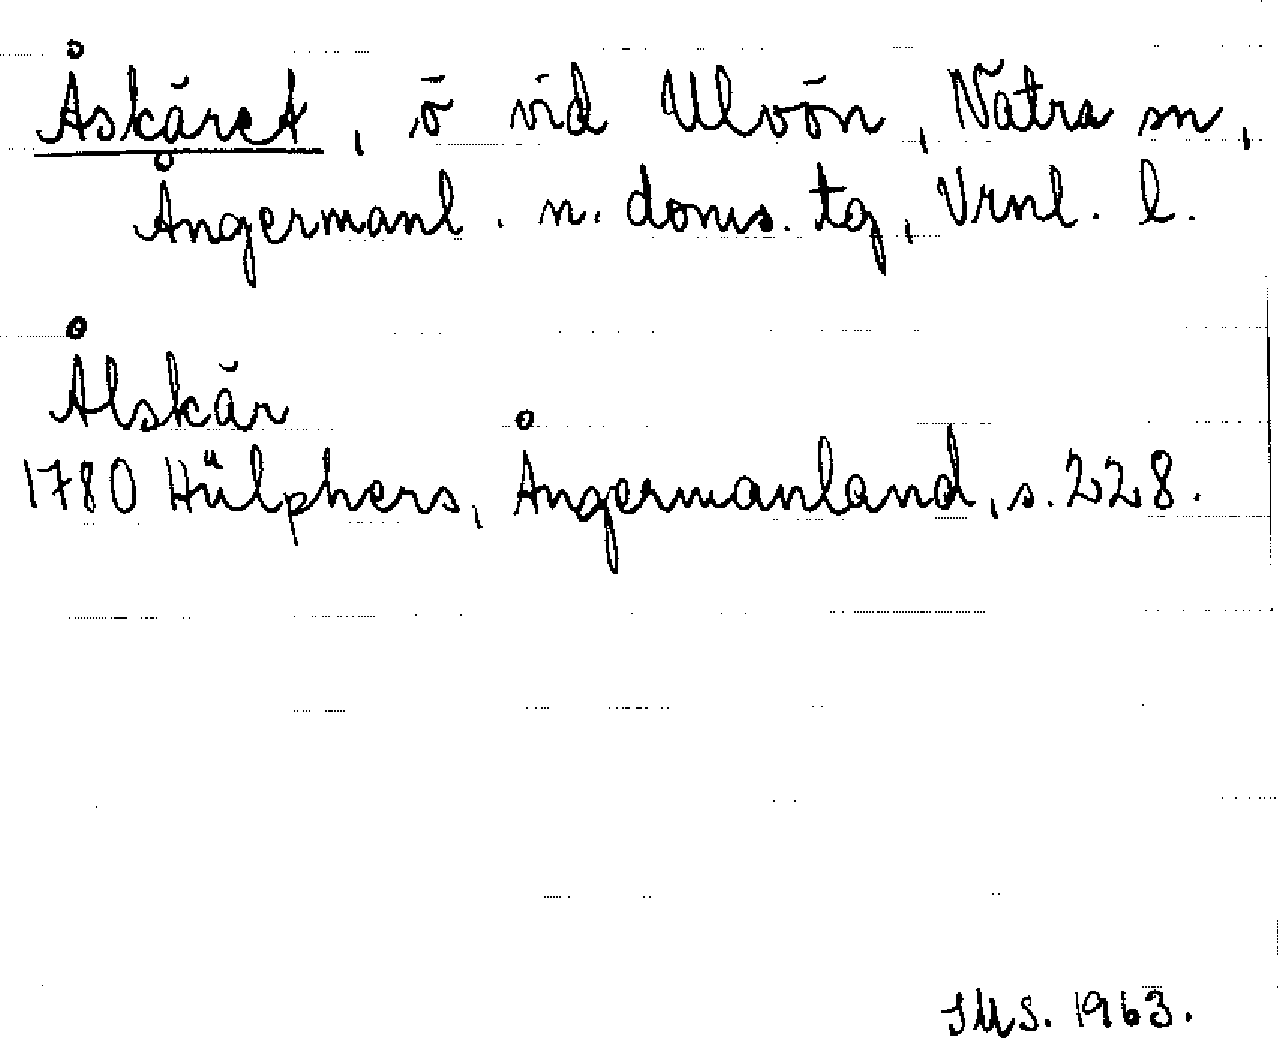 Åskäret, ö vid Ulvön, Nätra sn,
Ångermanl. n. doms. tg, Vrnl. l.
Ålskär
1780 Hülphers, Ångermanland, s. 228.
SMS. 1963.